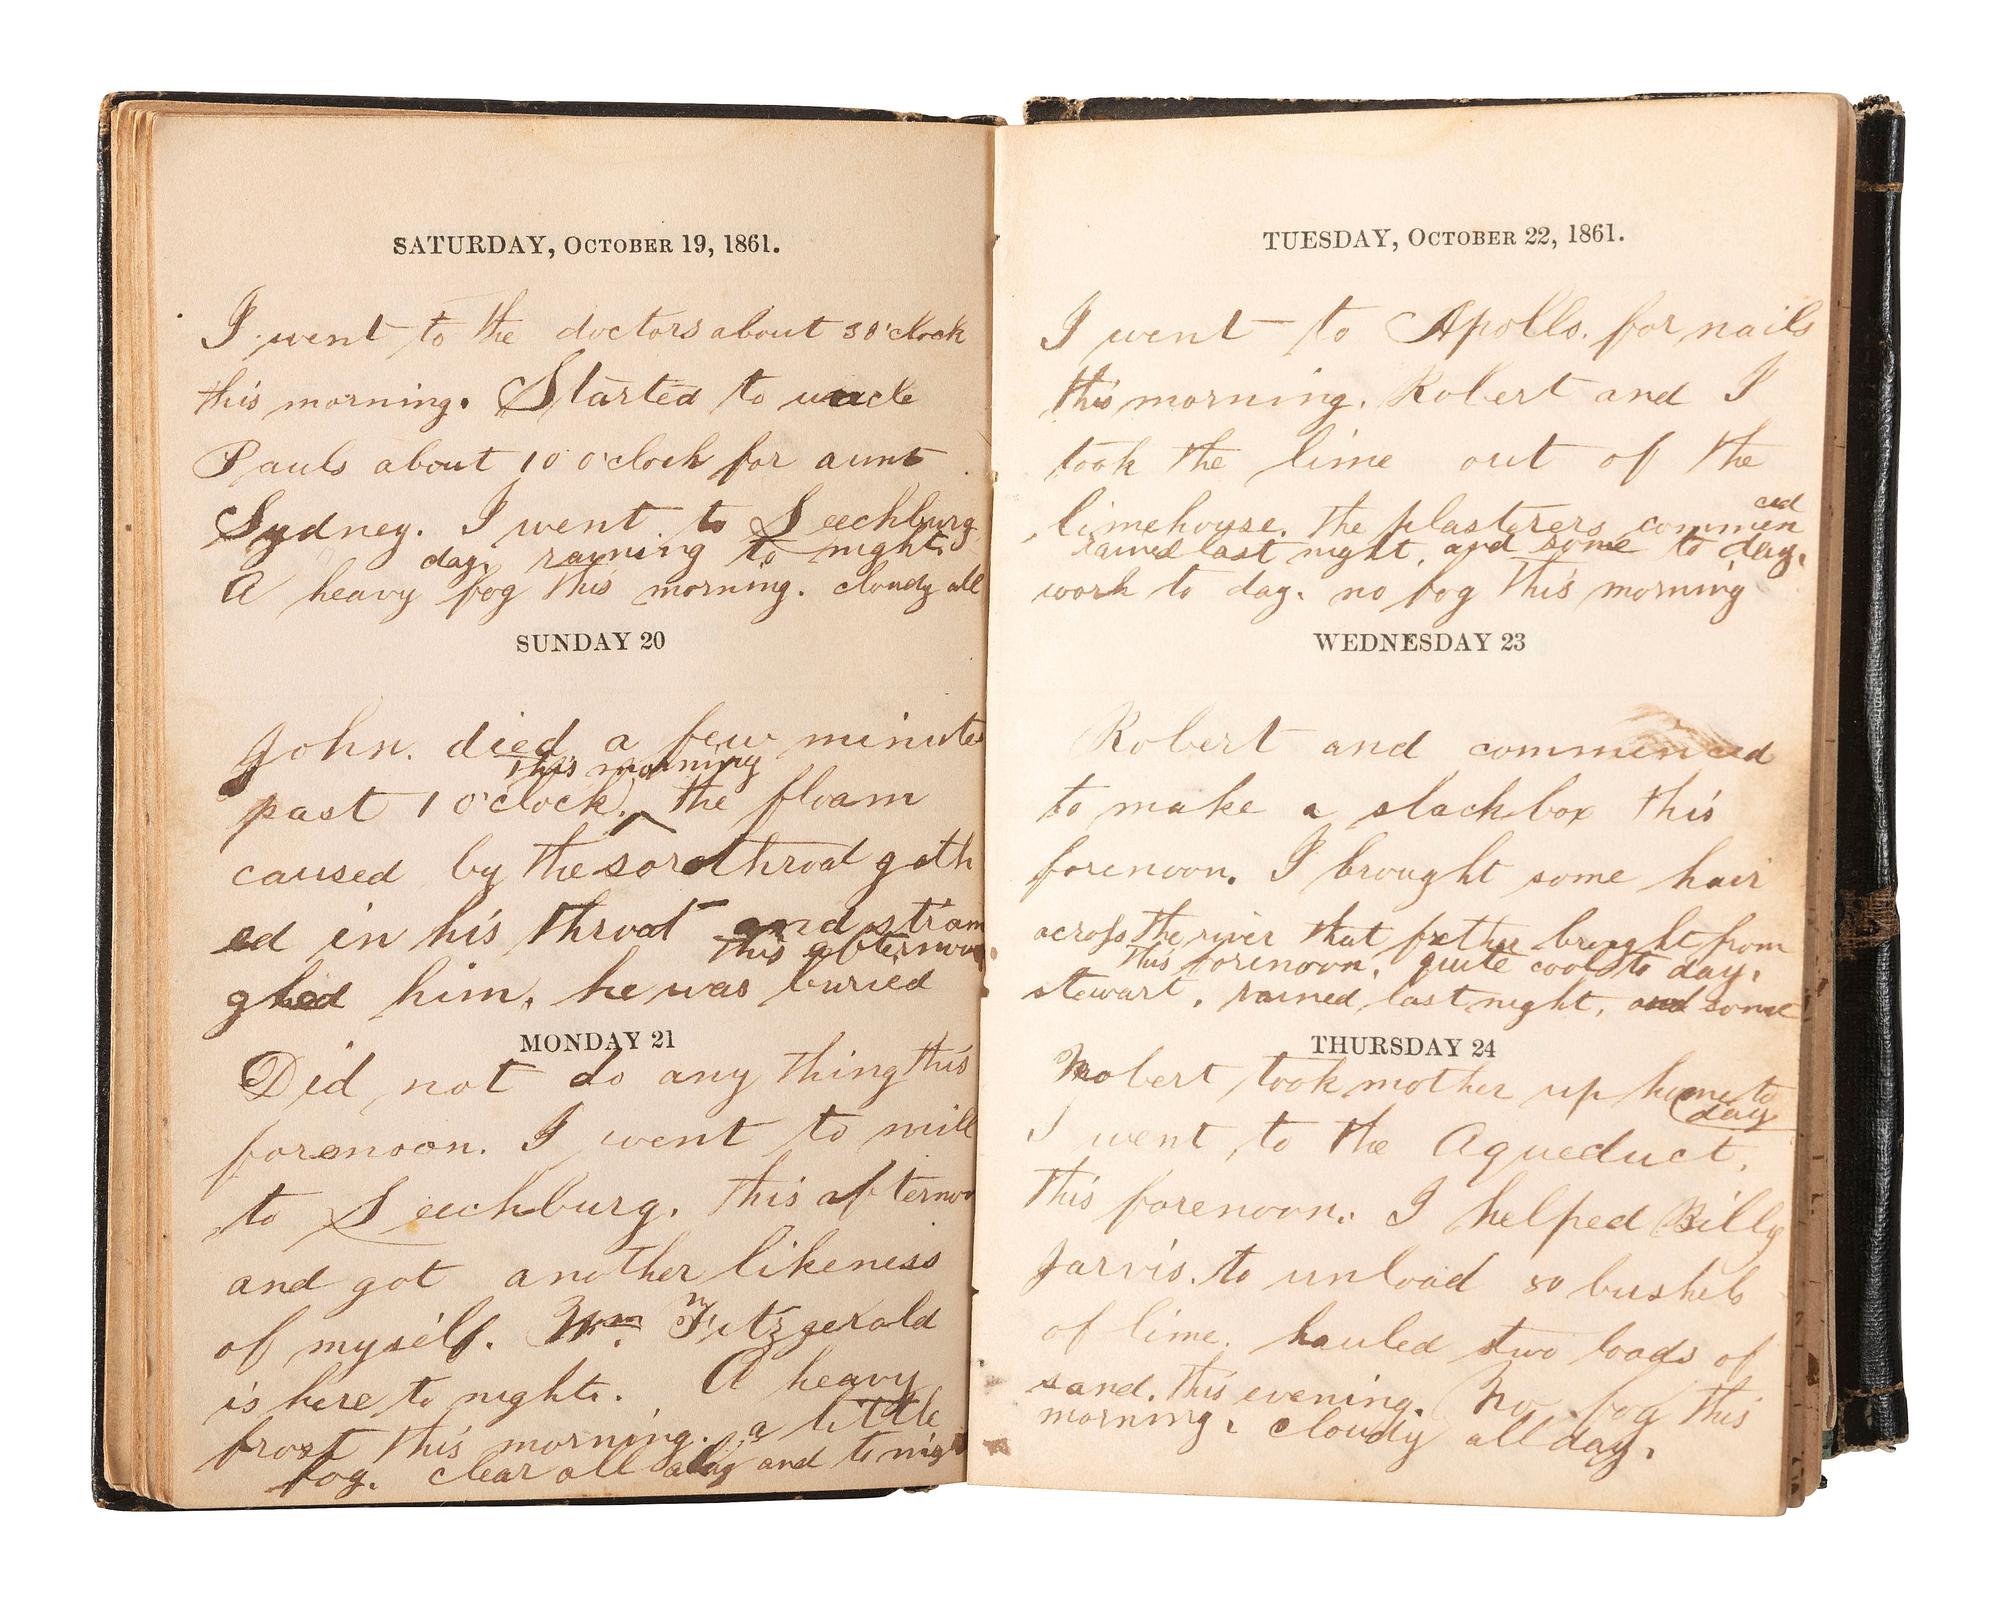 SATURDAY, OCTOBER 19, 1861.
I went to the doctors about 3 o'clock
this morning. Started to uncle
Pauls about 10 o'clock for aunt
Sydney. I went to Leechburg
day. rayning to night.
A heavy fog this morning. cloudy all
SUNDAY 20
John. died a few minutes
this morning
past 1 o'clock. ^ the floam
caused by the sorethroat gath
ed in his throat and stran
this afternoon.
gled him. he was buried
MONDAY 21
Did not do any thing this
forenoon. I went to mill
to Leechburg. this afternoon
and got another likeness
of myself. Wm. Fitzgerald
is here to night. A heavy
frost this morning. a little
fog. clear all day and to night
TUESDAY, OCTOBER 22, 1861.
I went to Apollo. for nails
this morning. Robert and I
took the lime out of the
ced
limehouse. the plasterers commen
rained last night, and some to day.
work to day. no fog this morning
WEDNESDAY 23
Robert and commenced
to make a slackbox this
forenoon. I brought some hair
across the river that father brought from
this forenoon. quite cool to day.
stewart. rained last night, and some
THURSDAY 24
Robert took mother up home to
day
I went to the Aqueduct.
this forenoon. I helped Billy
Jarvis. to unload 50 bushels
of lime. hauled two loads of
sand. this evening. No fog this
morning. cloudy all day.